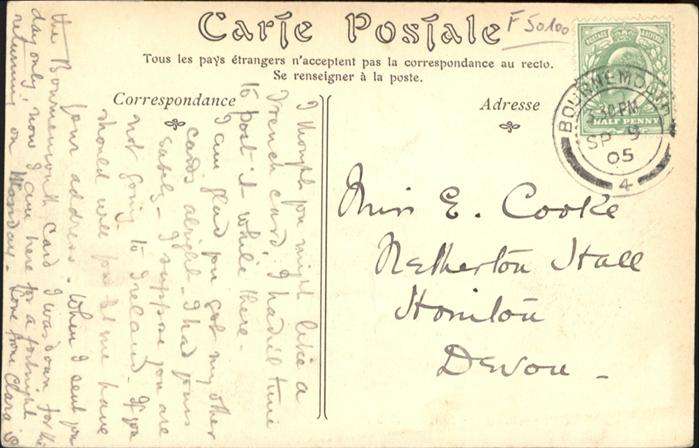 Carte Postale
F 50100
Tous les pays étrangers n'acceptent pas la correspondance au recto.
Se renseigner à la poste.
Correspondance
Adresse
HALF PENNY
BOURNEMOUTH
30 PM
SP 9
05
4
Miss E. Cooke
Netherton Hall
Honiton
Devon -
I thought you might like a
French card, I hadn't time
to post it while there.
I am glad you got my other
cards alright - I had yours
safely - I suppose you are
not going to Ireland. If you
should will you let me have
your address - When I sent you
the Bournemouth card I was down for the
day only, now I am here for a fortnight
returning on Monday - Love from Clara